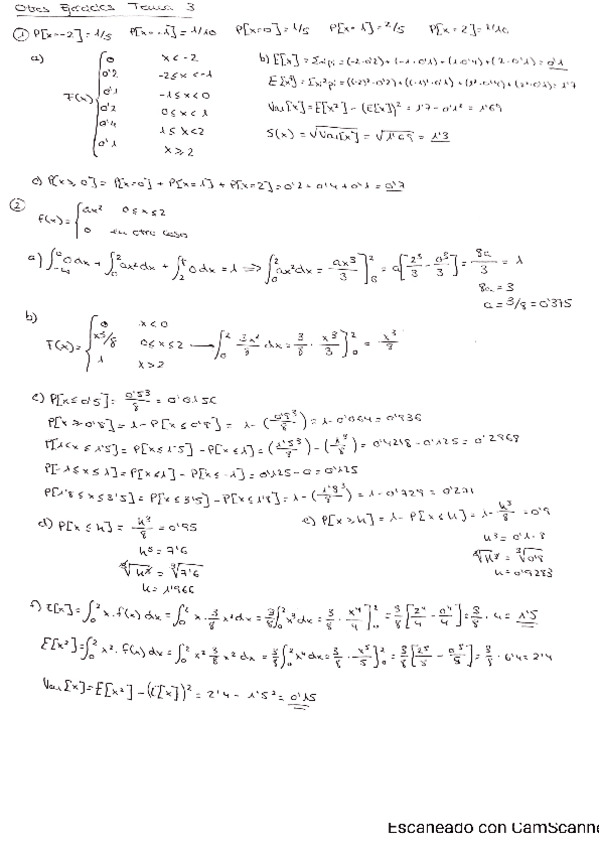 Otros Ejercicios Tema 3
① P[x=-2]=1/5 P[x=-1]=1/10 P[x=0]=1/5 P[x=1]=2/5 P[x=2]=1/10
a) F(x) { 0 x<-2
0'2 -2≤x<-1
0'1 -1≤x<0
0'2 0≤x<1
0'4 1≤x<2
0'1 x≥2
b) E[x]=Σxipi=(-2·0'2)+(-1·0'1)+(1·0'4)+(2·0'1)=0'1
E[x²]=Σxi²pi=((-2)²·0'2)+((-1)²·0'1)+(1²·0'4)+(2²·0'1)=1'7
Var[x]=E[x²]-(E[x])²=1'7-0'1²=1'69
S(x)=√Var[x]=√1'69=1'3
c) P[x≥0]=P[x=0]+P[x=1]+P[x=2]=0'2+0'4+0'1=0'7
② f(x)= { ax² 0≤x≤2
0 en otro caso
a) ∫0dx+∫₀²ax²dx+∫₂0dx=1 ⟹ ∫₀²ax²dx=ax³/3]₀²=a[2³/3-0³/3]=8a/3=1
8a=3
a=3/8=0'375
b) F(x)= { 0 x<0
x³/8 0≤x≤2 → ∫₀² 3x²/8 dx=3/8·x³/3]₀²=x³/8
1 x>2
c) P[x≤0'5]=0'5³/8=0'0156
P[x≥0'8]=1-P[x≤0'8]=1-(0'8³/8)=1-0'064=0'936
P[1<x≤1'5]=P[x≤1'5]-P[x≤1]=(1'5³/8)-(1³/8)=0'4218-0'125=0'2968
P[-1≤x≤1]=P[x≤1]-P[x≤-1]=0'125-0=0'125
P[1'8≤x≤3'5]=P[x≤3'5]-P[x≤1'8]=1-(1'8³/8)=1-0'729=0'271
d) P[x≤k]=k³/8=0'95
k³=7'6
∛k³=∛7'6
k=1'966
e) P[x≥k]=1-P[x≤k]=1-k³/8=0'9
k³=0'1·8
∛k³=∛0'8
k=0'9283
f) E[x]=∫₀²x·f(x)dx=∫₀²x·3/8x²dx=3/8∫₀²x³dx=3/8·x⁴/4]₀²=3/8[2⁴/4-0⁴/4]=3/8·4=1'5
E[x²]=∫₀²x²·f(x)dx=∫₀²x²3/8x²dx=3/8∫₀²x⁴dx=3/8·x⁵/5]₀²=3/8[2⁵/5-0⁵/5]=3/8·6'4=2'4
Var[x]=E[x²]-(E[x])²=2'4-1'5²=0'15
Escaneado con CamScanne